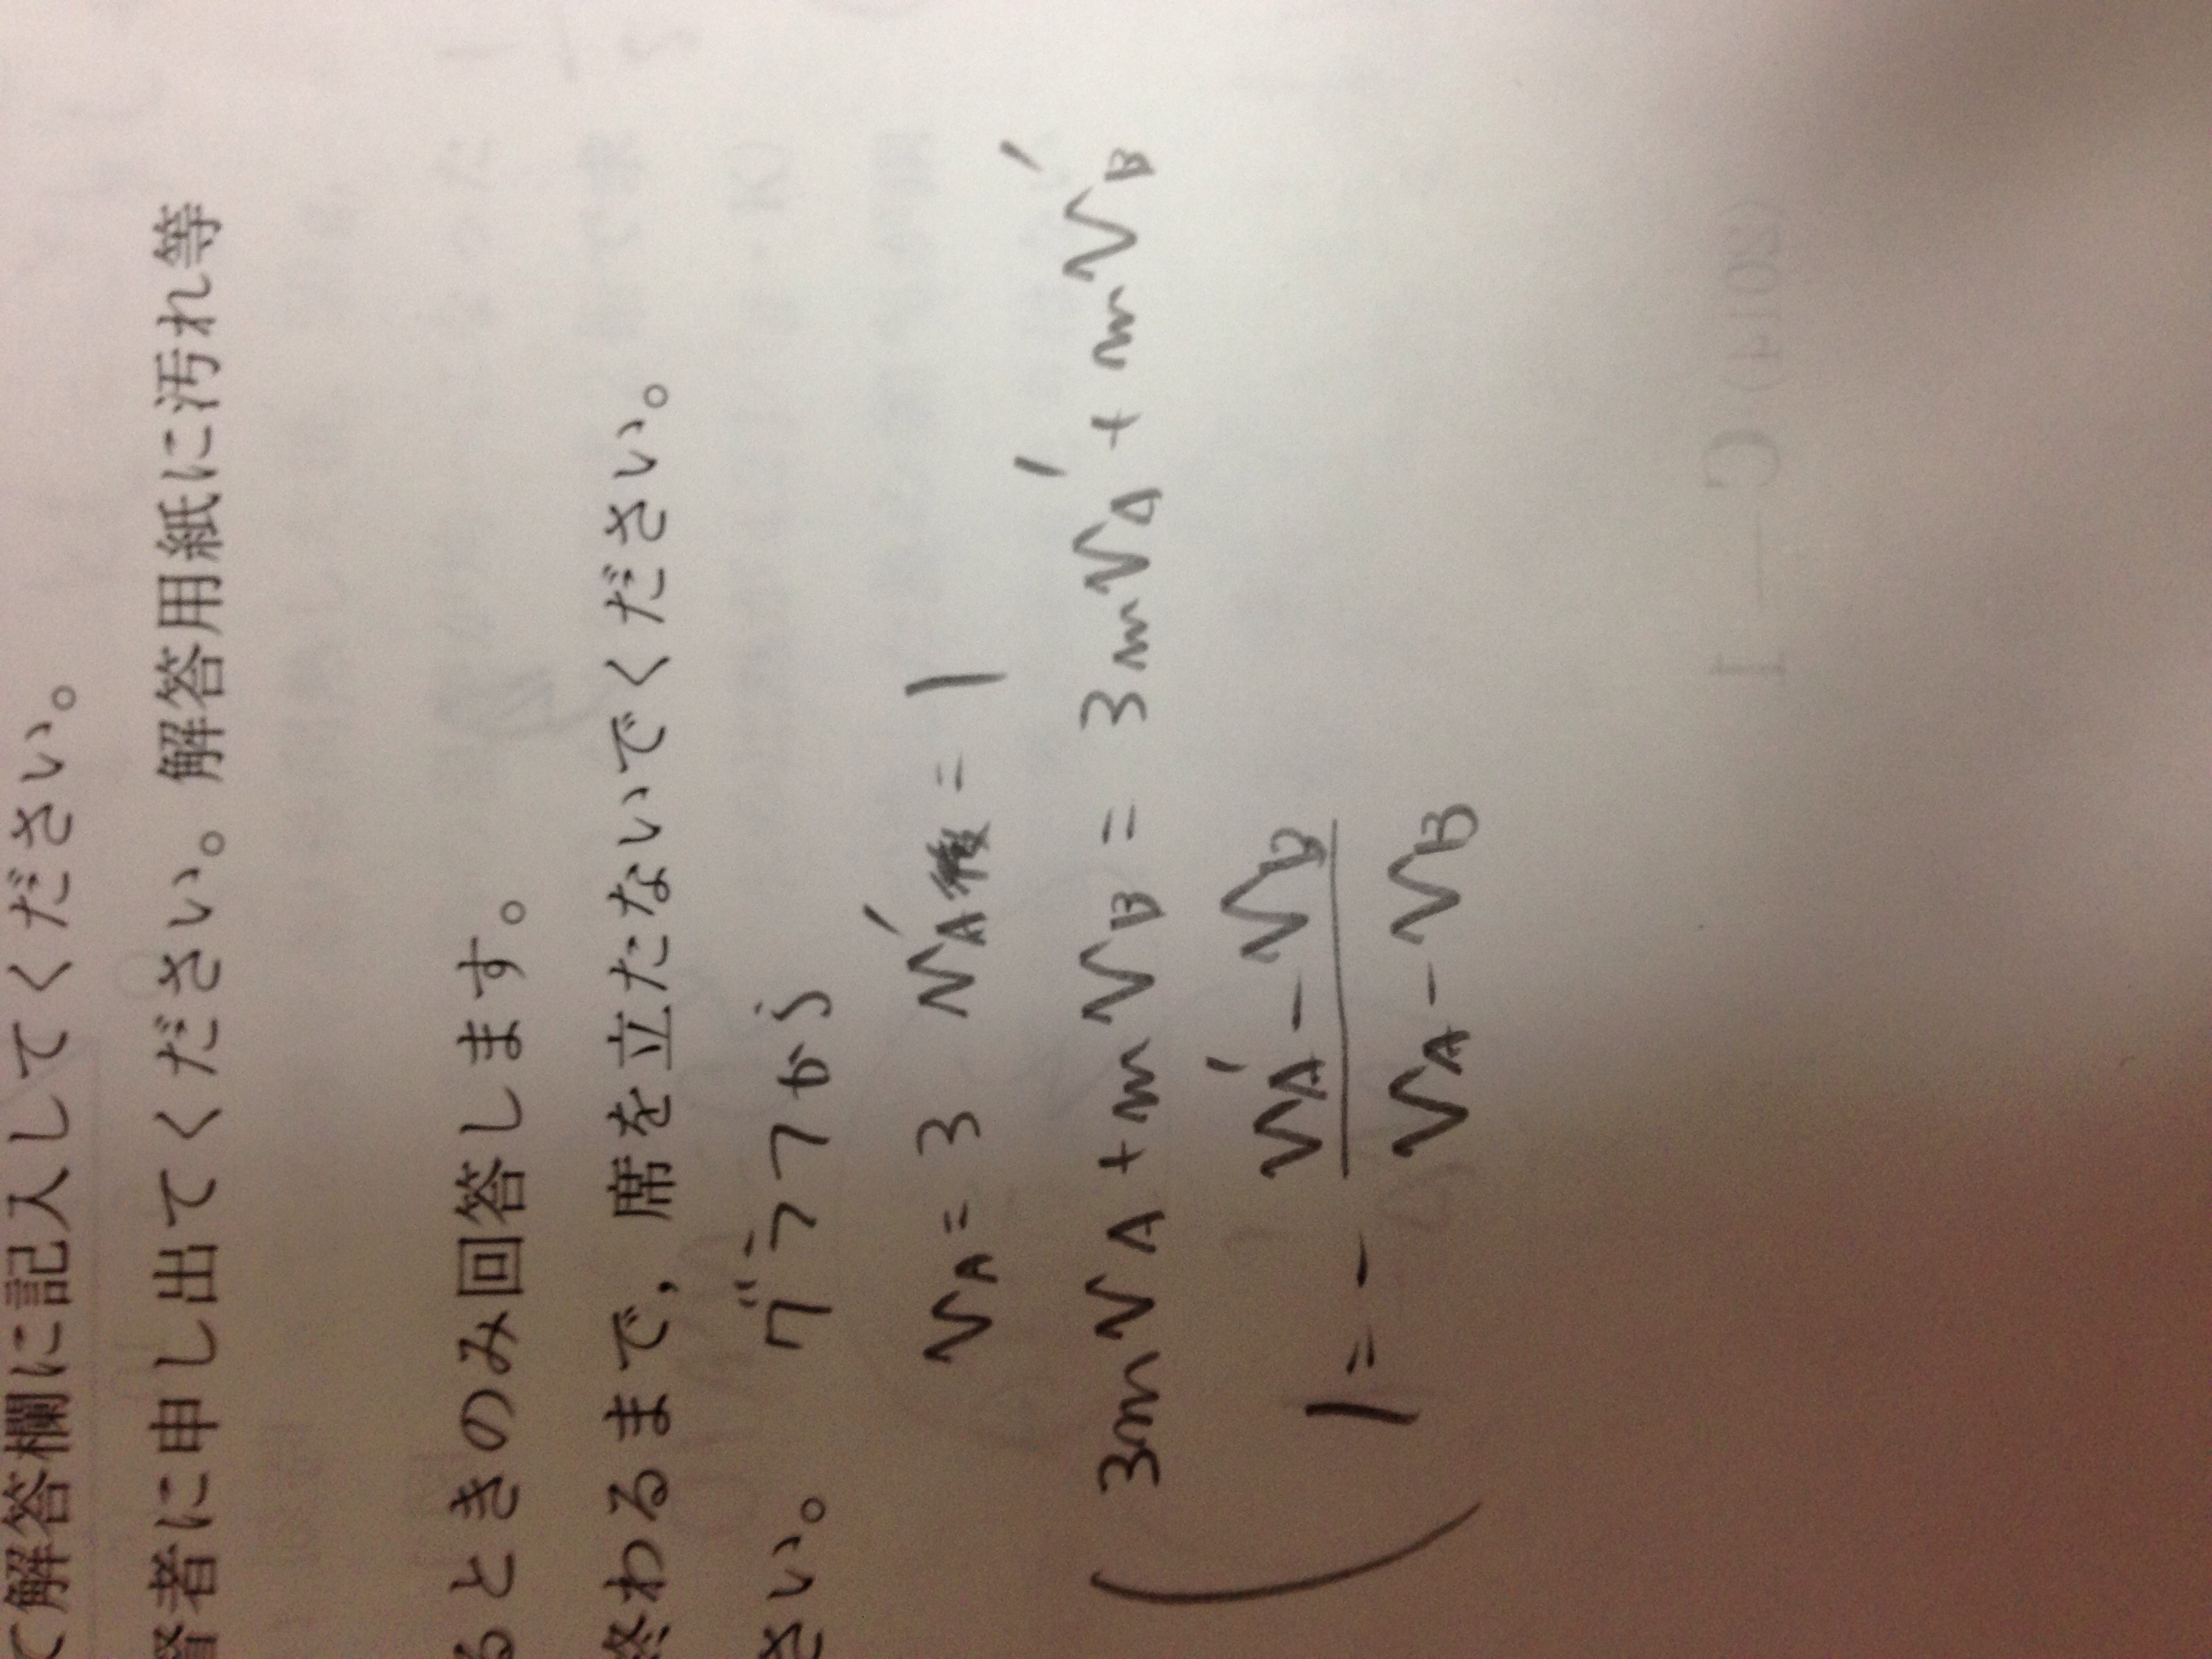 て解答欄に記入してください。
督者に申し出てください。解答用紙に汚れ等
るときのみ回答します。
終わるまで，席を立たないでください。
さい。
グラフから
VA=3 VA'=1
3mVA+mVB=3mVA'+mVB'
1=-(VA'-VB)/(VA-VB)